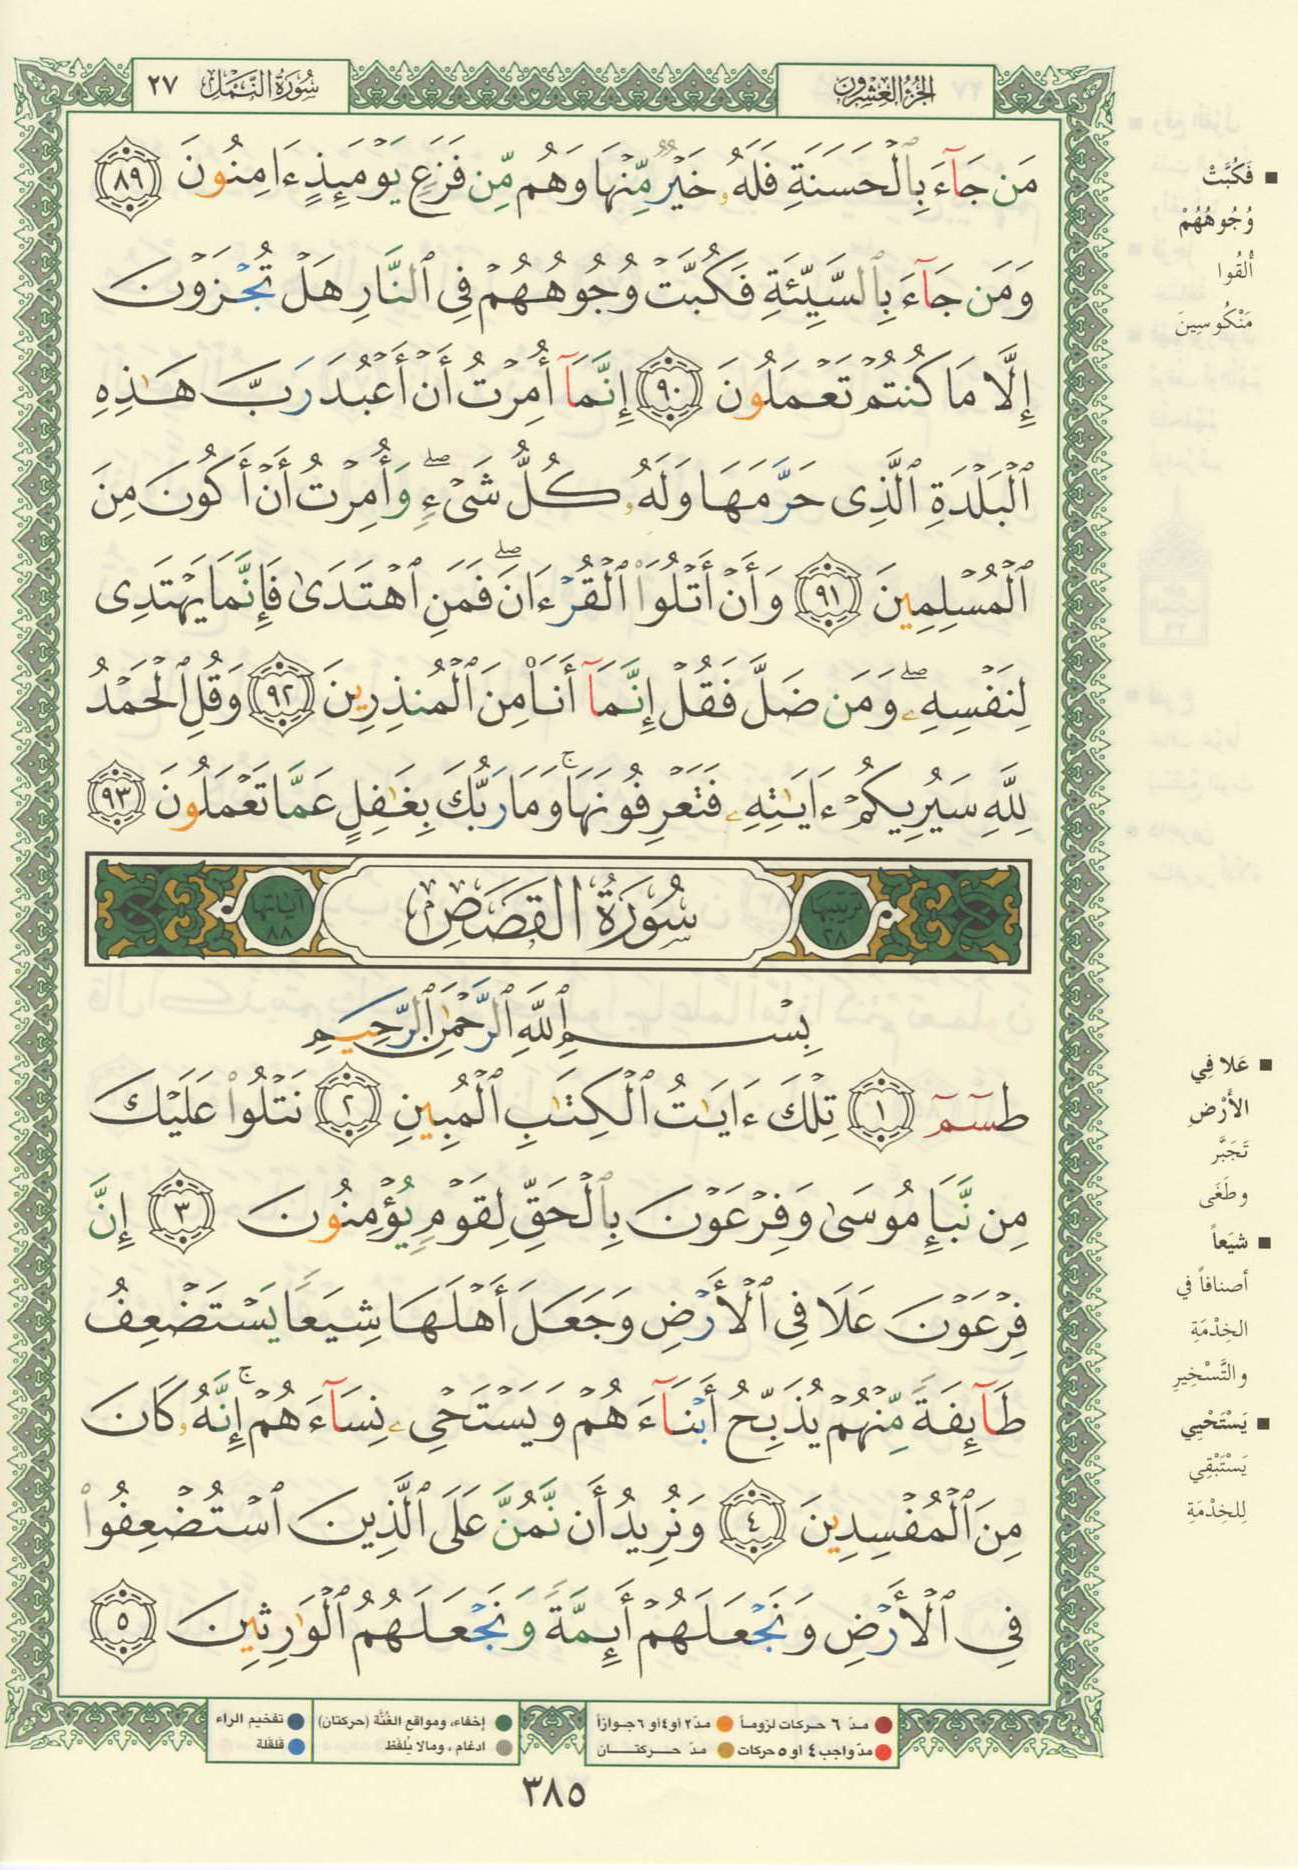 سُورَةُ النَّمْلِ ٢٧
الجُزْءُ العِشْرُونَ
مَن جَآءَ بِٱلْحَسَنَةِ فَلَهُۥ خَيْرٌ مِّنْهَا وَهُم مِّن فَزَعٍ يَوْمَئِذٍ ءَامِنُونَ ٨٩
وَمَن جَآءَ بِٱلسَّيِّئَةِ فَكُبَّتْ وُجُوهُهُمْ فِى ٱلنَّارِ هَلْ تُجْزَوْنَ
إِلَّا مَا كُنتُمْ تَعْمَلُونَ ٩٠ إِنَّمَآ أُمِرْتُ أَنْ أَعْبُدَ رَبَّ هَـٰذِهِ
ٱلْبَلْدَةِ ٱلَّذِى حَرَّمَهَا وَلَهُۥ كُلُّ شَىْءٍ ۖ وَأُمِرْتُ أَنْ أَكُونَ مِنَ
ٱلْمُسْلِمِينَ ٩١ وَأَنْ أَتْلُوَا۟ ٱلْقُرْءَانَ ۖ فَمَنِ ٱهْتَدَىٰ فَإِنَّمَا يَهْتَدِى
لِنَفْسِهِۦ ۖ وَمَن ضَلَّ فَقُلْ إِنَّمَآ أَنَا۠ مِنَ ٱلْمُنذِرِينَ ٩٢ وَقُلِ ٱلْحَمْدُ
لِلَّهِ سَيُرِيكُمْ ءَايَـٰتِهِۦ فَتَعْرِفُونَهَا ۚ وَمَا رَبُّكَ بِغَـٰفِلٍ عَمَّا تَعْمَلُونَ ٩٣
ترتيبها ٢٨ سُورَةُ القَصَصِ آياتها ٨٨
بِسْمِ ٱللَّهِ ٱلرَّحْمَـٰنِ ٱلرَّحِيمِ
طسٓمٓ ١ تِلْكَ ءَايَـٰتُ ٱلْكِتَـٰبِ ٱلْمُبِينِ ٢ نَتْلُوا۟ عَلَيْكَ
مِن نَّبَإِ مُوسَىٰ وَفِرْعَوْنَ بِٱلْحَقِّ لِقَوْمٍ يُؤْمِنُونَ ٣ إِنَّ
فِرْعَوْنَ عَلَا فِى ٱلْأَرْضِ وَجَعَلَ أَهْلَهَا شِيَعًا يَسْتَضْعِفُ
طَآئِفَةً مِّنْهُمْ يُذَبِّحُ أَبْنَآءَهُمْ وَيَسْتَحْىِۦ نِسَآءَهُمْ ۚ إِنَّهُۥ كَانَ
مِنَ ٱلْمُفْسِدِينَ ٤ وَنُرِيدُ أَن نَّمُنَّ عَلَى ٱلَّذِينَ ٱسْتُضْعِفُوا۟
فِى ٱلْأَرْضِ وَنَجْعَلَهُمْ أَئِمَّةً وَنَجْعَلَهُمُ ٱلْوَٰرِثِينَ ٥
■ فَكُبَّتْ
وُجُوهُهُمْ
أُلْقُوا
مَنْكُوسِينَ
■ عَلا فِي
الأَرْضِ
تَجَبَّر
وطَغَى
■ شيَعاً
أصنافاً في
الخِدْمَةِ
والتَّسْخِيرِ
■ يَسْتَحْيِي
يَسْتَبْقِي
لِلخِدْمَةِ
مدّ ٦ حركات لزوماً مدّ ٢ أو ٤ أو ٦ جوازاً
مدّ واجب ٤ أو ٥ حركات مدّ حركتان
إخفاء، ومواقع الغُنَّة (حركتان) تفخيم الراء
ادغام ، ومالا يُلفَظ قلقلة
٣٨٥